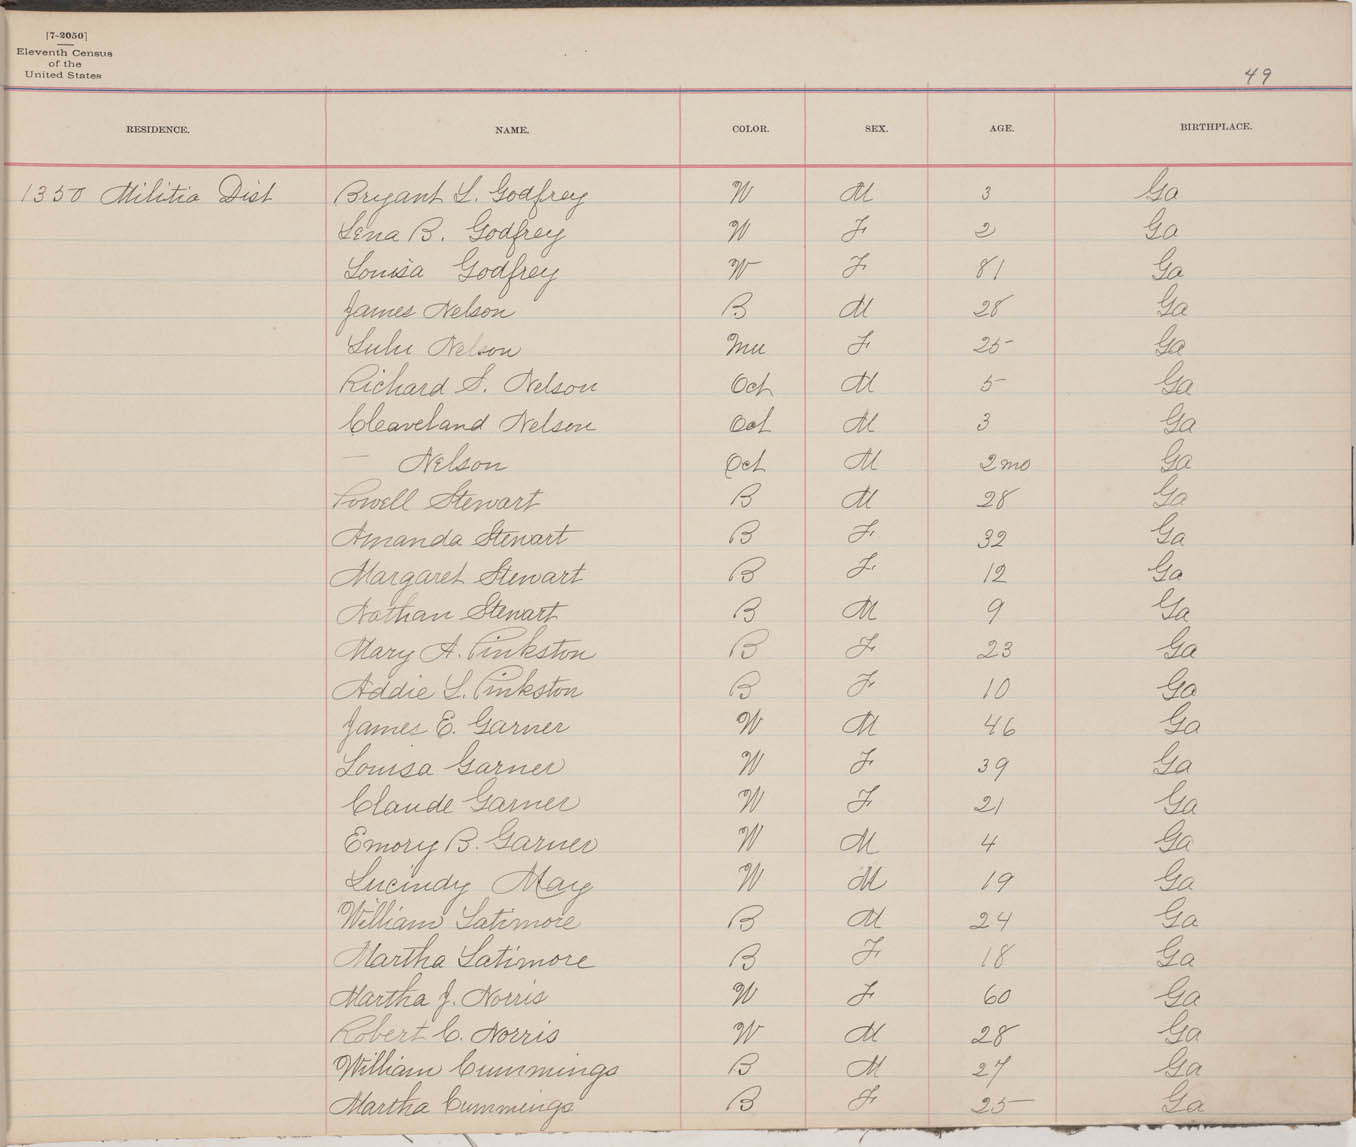 [7-2050]
Eleventh Census
of the
United States
49
RESIDENCE. NAME. COLOR. SEX. AGE. BIRTHPLACE.
1350 Militia Dist Bryant L. Godfrey W M 3 Ga
Lena B. Godfrey W F 2 Ga
Louisa Godfrey W F 81 Ga
James Nelson B M 28 Ga
Lulu Nelson Mu F 25 Ga
Richard S. Nelson Oct M 5 Ga
Cleaveland Nelson Oct M 3 Ga
— Nelson Oct M 2mo Ga
Powell Stewart B M 28 Ga
Amanda Stewart B F 32 Ga
Margaret Stewart B F 12 Ga
Nathan Stewart B M 9 Ga
Mary A. Pinkston B F 23 Ga
Addie L. Pinkston B F 10 Ga
James E. Garner W M 46 Ga
Louisa Garner W F 39 Ga
Claude Garner W F 21 Ga
Emory B. Garner W M 4 Ga
Lucindy May W M 19 Ga
William Latimore B M 24 Ga
Martha Latimore B F 18 Ga
Martha J. Norris W F 60 Ga
Robert C. Norris W M 28 Ga
William Cummings B M 27 Ga
Martha Cummings B F 25 Ga